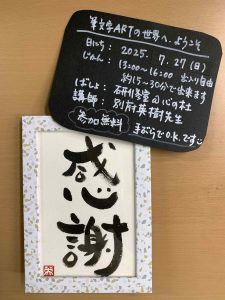 筆文字ARTの世界へ、ようこそ
日にち：2025.7.27(日)
じかん：13:00〜16:00 出入り自由
約15〜30分で出来ます
ばしょ：研修室の心の杜
講師：別府英樹先生
参加無料
手ぶらでO.K.です
感謝